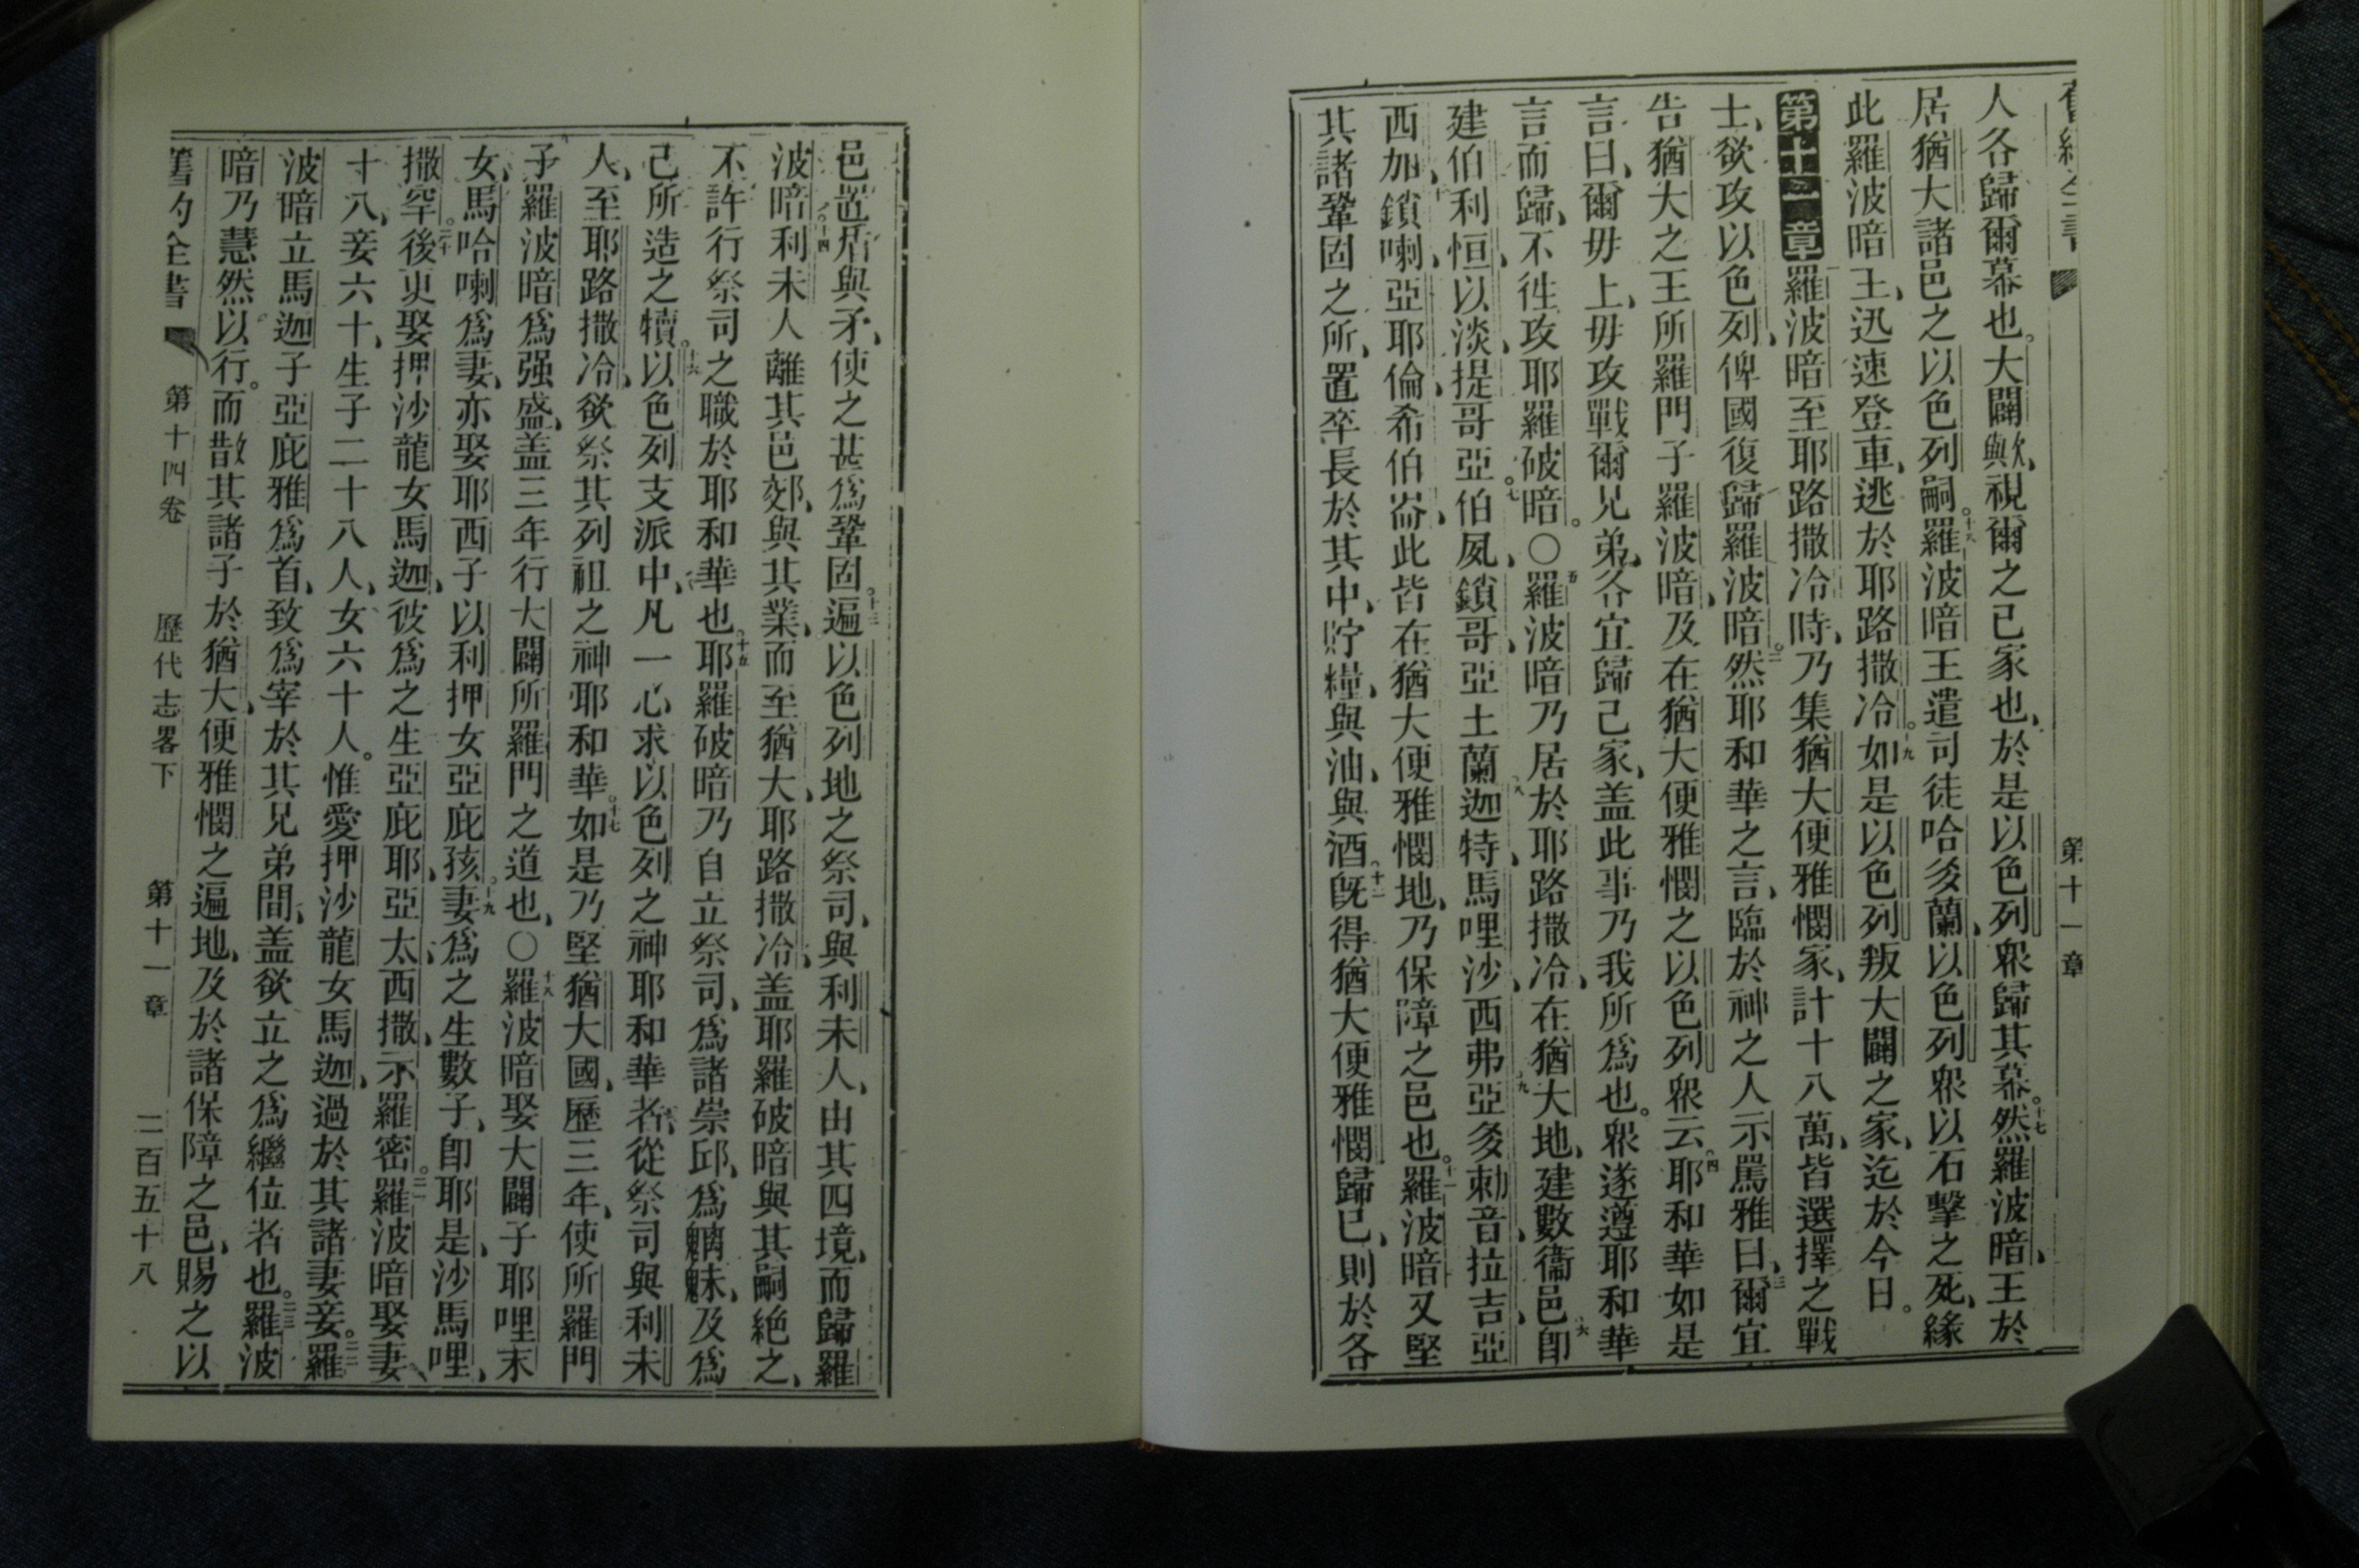 人各歸爾幕也。大闢歟、視爾之己家也、於是以色列眾歸其幕。十七然羅波暗、王於
居猶大諸邑之以色列嗣。十八羅波暗王遣司徒哈多蘭、以色列眾以石擊之死、緣
此羅波暗王、迅速登車、逃於耶路撒冷。十九如是以色列叛大闢之家、迄於今日。
第十一章 羅波暗至耶路撒冷時、乃集猶大便雅憫家、計十八萬、皆選擇之戰
士、欲攻以色列、俾國復歸羅波暗。二然耶和華之言、臨於神之人示罵雅曰、三爾宜
告猶大之王所羅門子羅波暗、及在猶大便雅憫之以色列眾云、四耶和華如是
言曰、爾毋上、毋攻戰爾兄弟、各宜歸己家、盖此事乃我所為也。眾遂遵耶和華
言而歸、不徃攻耶羅破暗。○五羅波暗乃居於耶路撒冷、在猶大地、建數衞邑、六卽
建伯利恒、以淡、提哥亞、七伯夙、鎖哥、亞土蘭、八迦特、馬哩沙、西弗、九亞多勑音、拉吉、亞
西加、鎖喇、亞耶倫、希伯崙、此皆在猶大便雅憫地、乃保障之邑也。十一羅波暗又堅
其諸鞏固之所、置卒長於其中、貯糧、與油、與酒。十二旣得猶大便雅憫歸己、則於各
第十一章
邑置盾與矛、使之甚為鞏固。十三遍以色列地之祭司、與利未人、由其四境、而歸羅
波暗、十四利未人離其邑郊、與其業、而至猶大、耶路撒冷、盖耶羅破暗與其嗣絕之、
不許行祭司之職於耶和華也。十五耶羅破暗乃自立祭司、為諸崇邱、為魑魅、及為
己所造之犢。十六以色列支派中、凡一心求以色列之神耶和華者、從祭司與利未
人、至耶路撒冷、欲祭其列祖之神耶和華。十七如是乃堅猶大國、歷三年、使所羅門
子羅波暗為强盛、盖三年行大闢所羅門之道也、○十八羅波暗娶大闢子耶哩末
女、馬哈喇為妻、亦娶耶西子以利押女亞庇孩妻。十九為之生數子、卽耶是、沙馬哩、
撒罕。二十後更娶押沙龍女馬迦、彼為之生亞庇耶、亞太、西撒、示羅密。二一羅波暗娶妻、
十八、妾六十、生子二十八人、女六十人。惟愛押沙龍女馬迦、過於其諸妻妾。二二羅
波暗立馬迦子亞庇雅為首、致為宰於其兄弟間、盖欲立之為繼位者也。二三羅波
暗乃慧然以行。而散其諸子於猶大、便雅憫之遍地、及於諸保障之邑、賜之以
舊約全書 第十四卷 歷代志畧下 第十一章 二百五十八